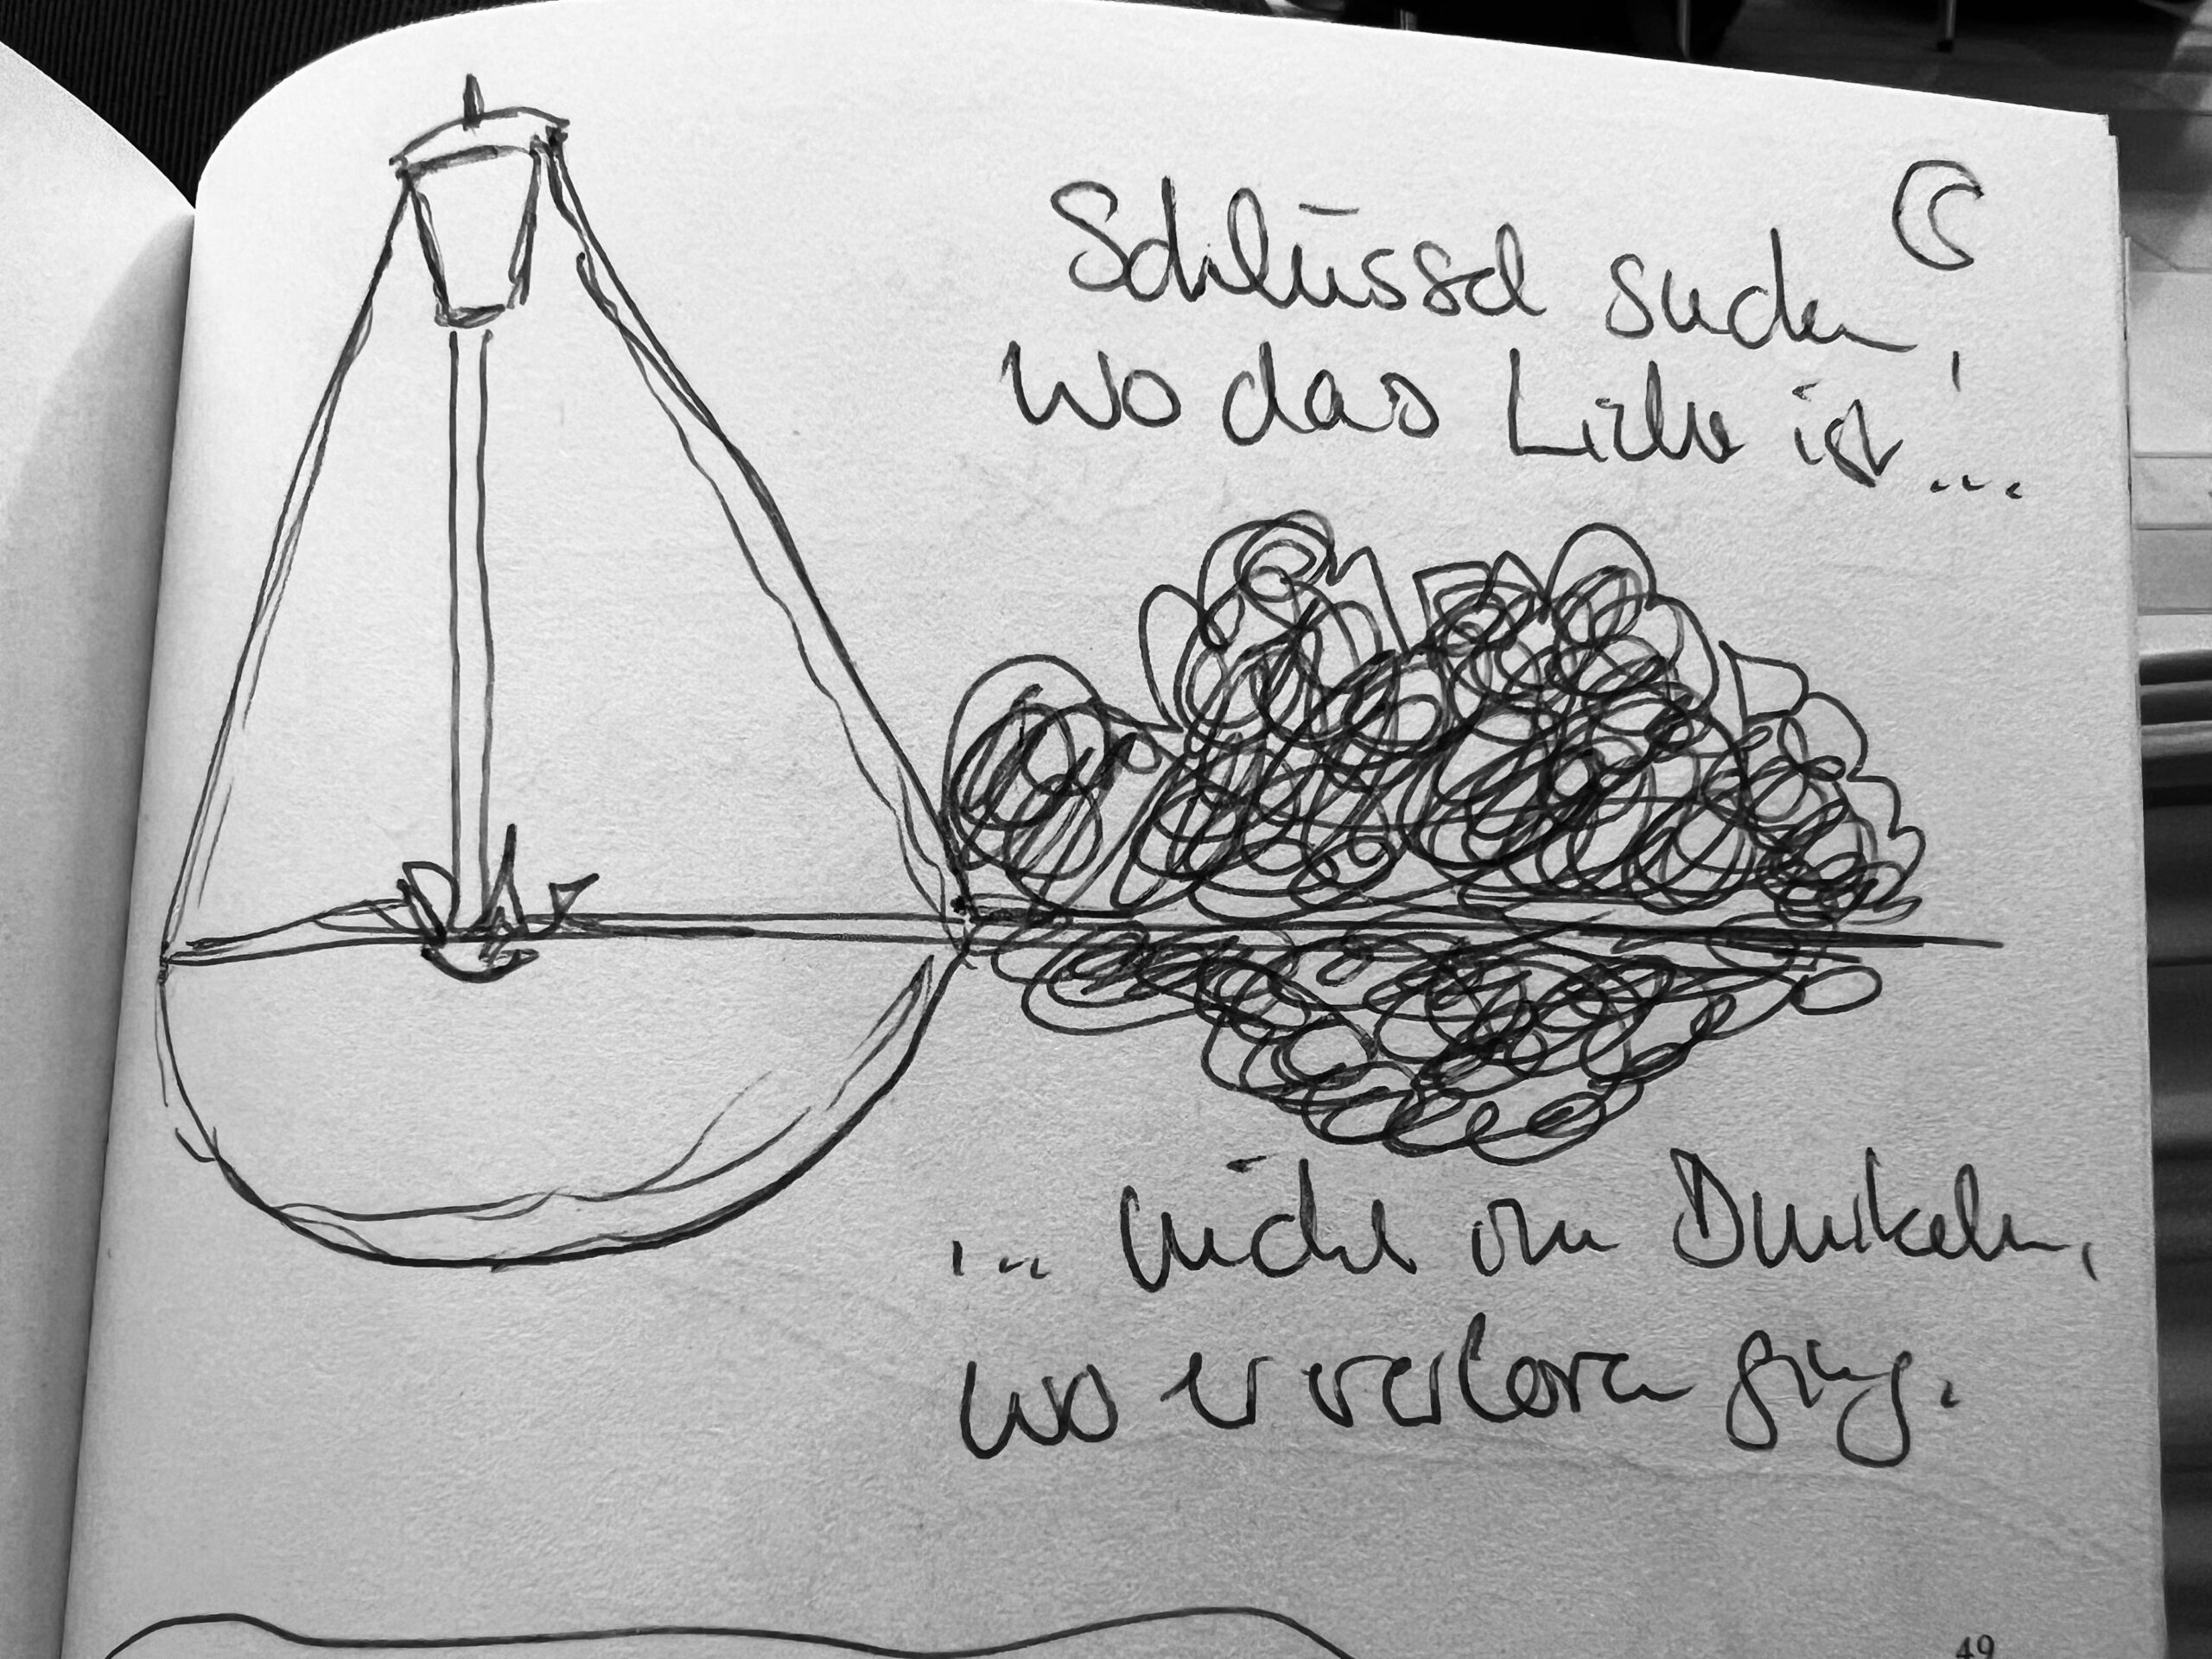 Schlüssel suchen,
wo das Licht ist ...
... nicht im Dunkeln,
wo er verloren ging.
49